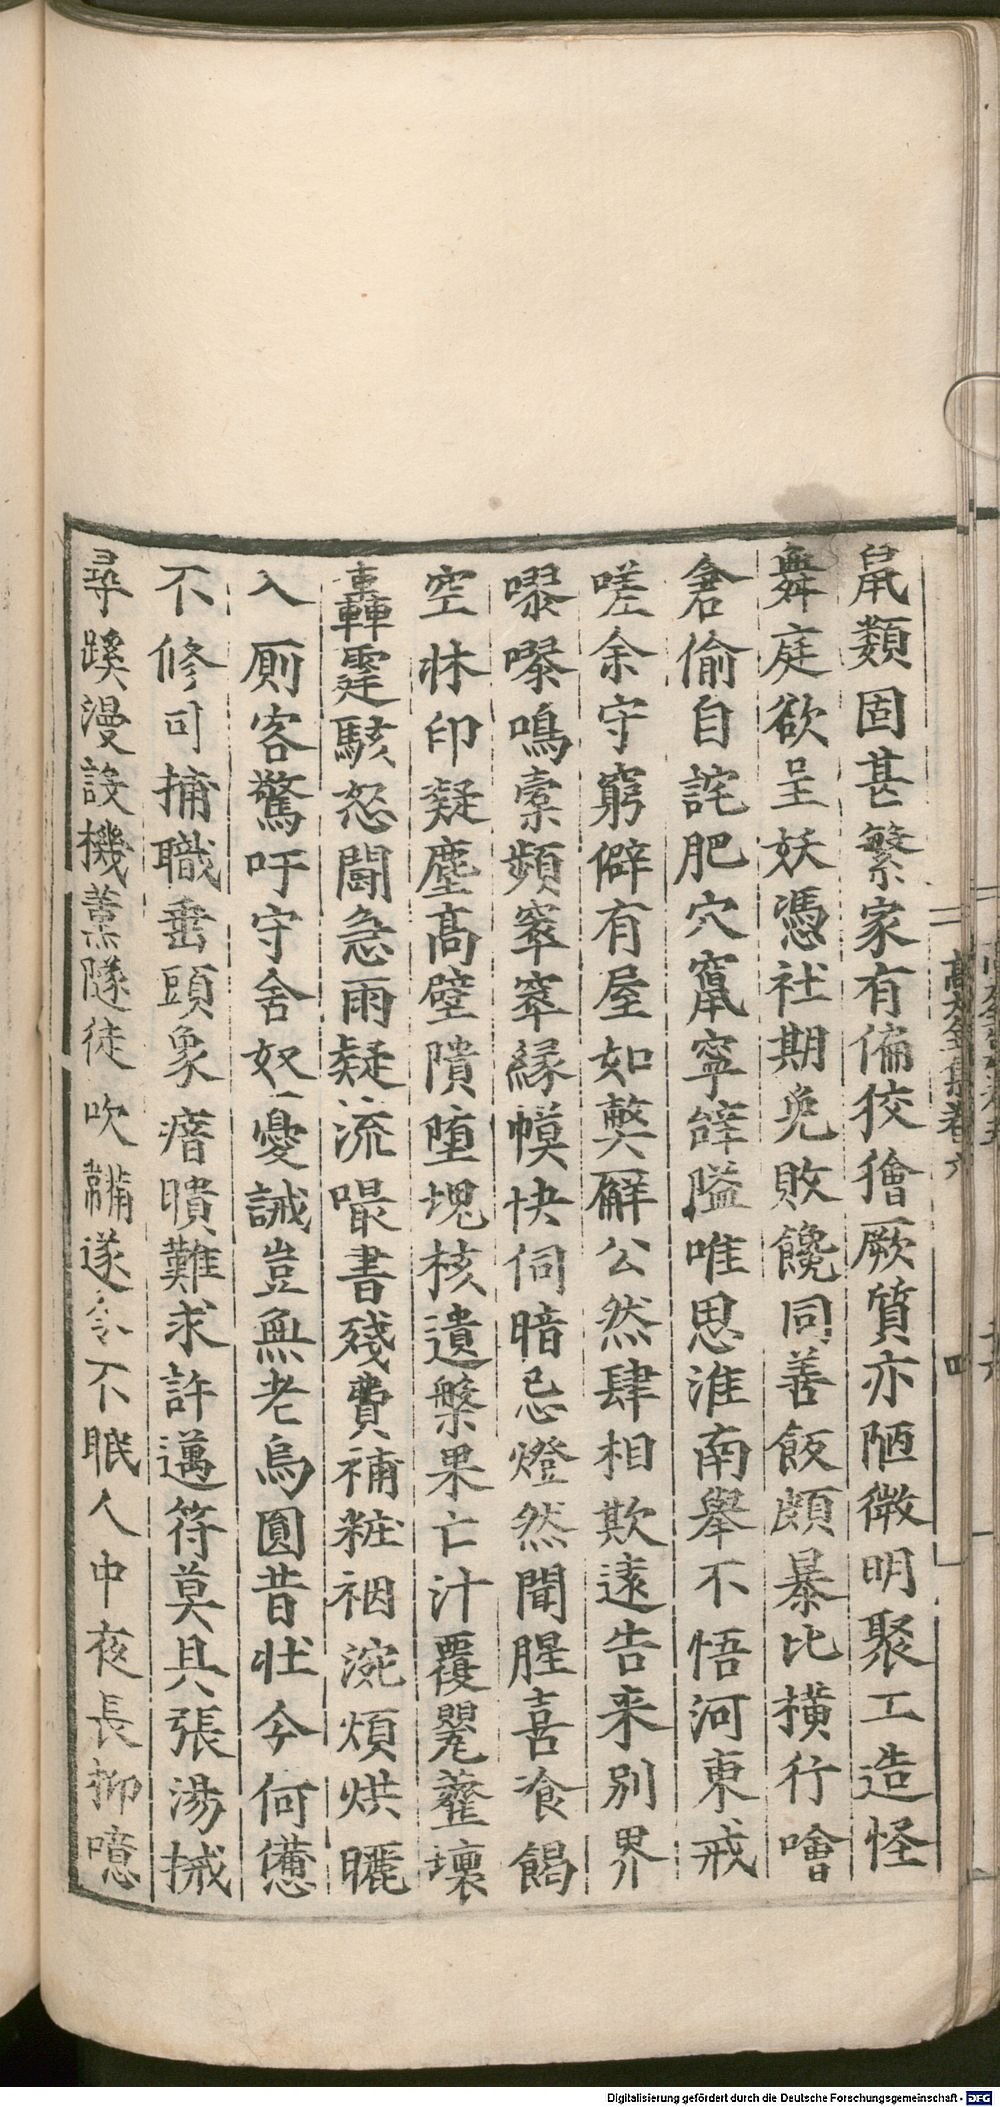 鼠類固甚繁家有偏狡獪厥質亦陋微明聚工造怪
舞庭欲呈妖憑社期免敗饞同善飯頗暴比橫行噲
倉偷自詫肥穴竄寧辭隘唯思淮南舉不悟河東戒
嗟余守窮僻有屋如弊廨公然肆相欺遠告来別界
嚟嚟鳴橐頻窣窣緣幙快伺暗忌燈然聞腥喜飡餲
空牀印凝塵高壁隤堕塊核遺槃果亡汁覆甖虀壞
轟霆駭怒鬪急雨疑流嘬書殘費補粧裀涴煩烘曬
入厠客驚吁守舍奴憂誡豈無老烏圓昔壯今何憊
不修司捕職垂頭象瘖聵難求許邁符莫具張湯械
尋蹊漫設機薰隧徒吹韛遂令不眠人中夜長抑噫
高太史集卷六
Digitalisierung gefördert durch die Deutsche Forschungsgemeinschaft - DFG